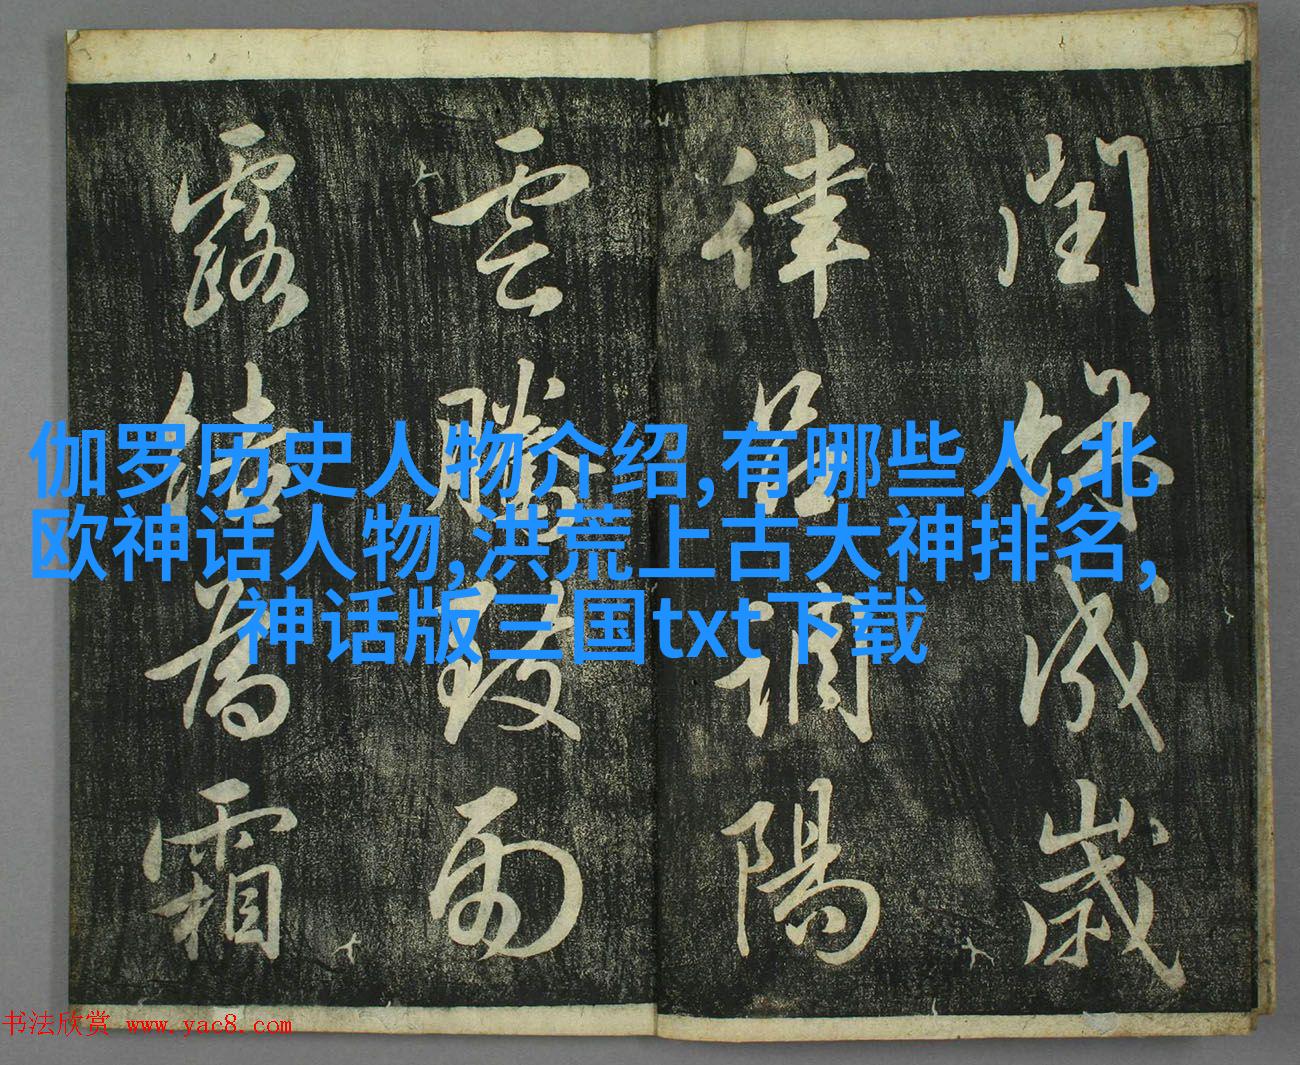 閏餘成歲
律呂調陽
雲騰致雨
露結為霜
伽罗历史人物介绍,有哪些人,北
欧神话人物,洪荒上古大神排名,
神话版三国txt下载
书法欣赏 www.yac8.com